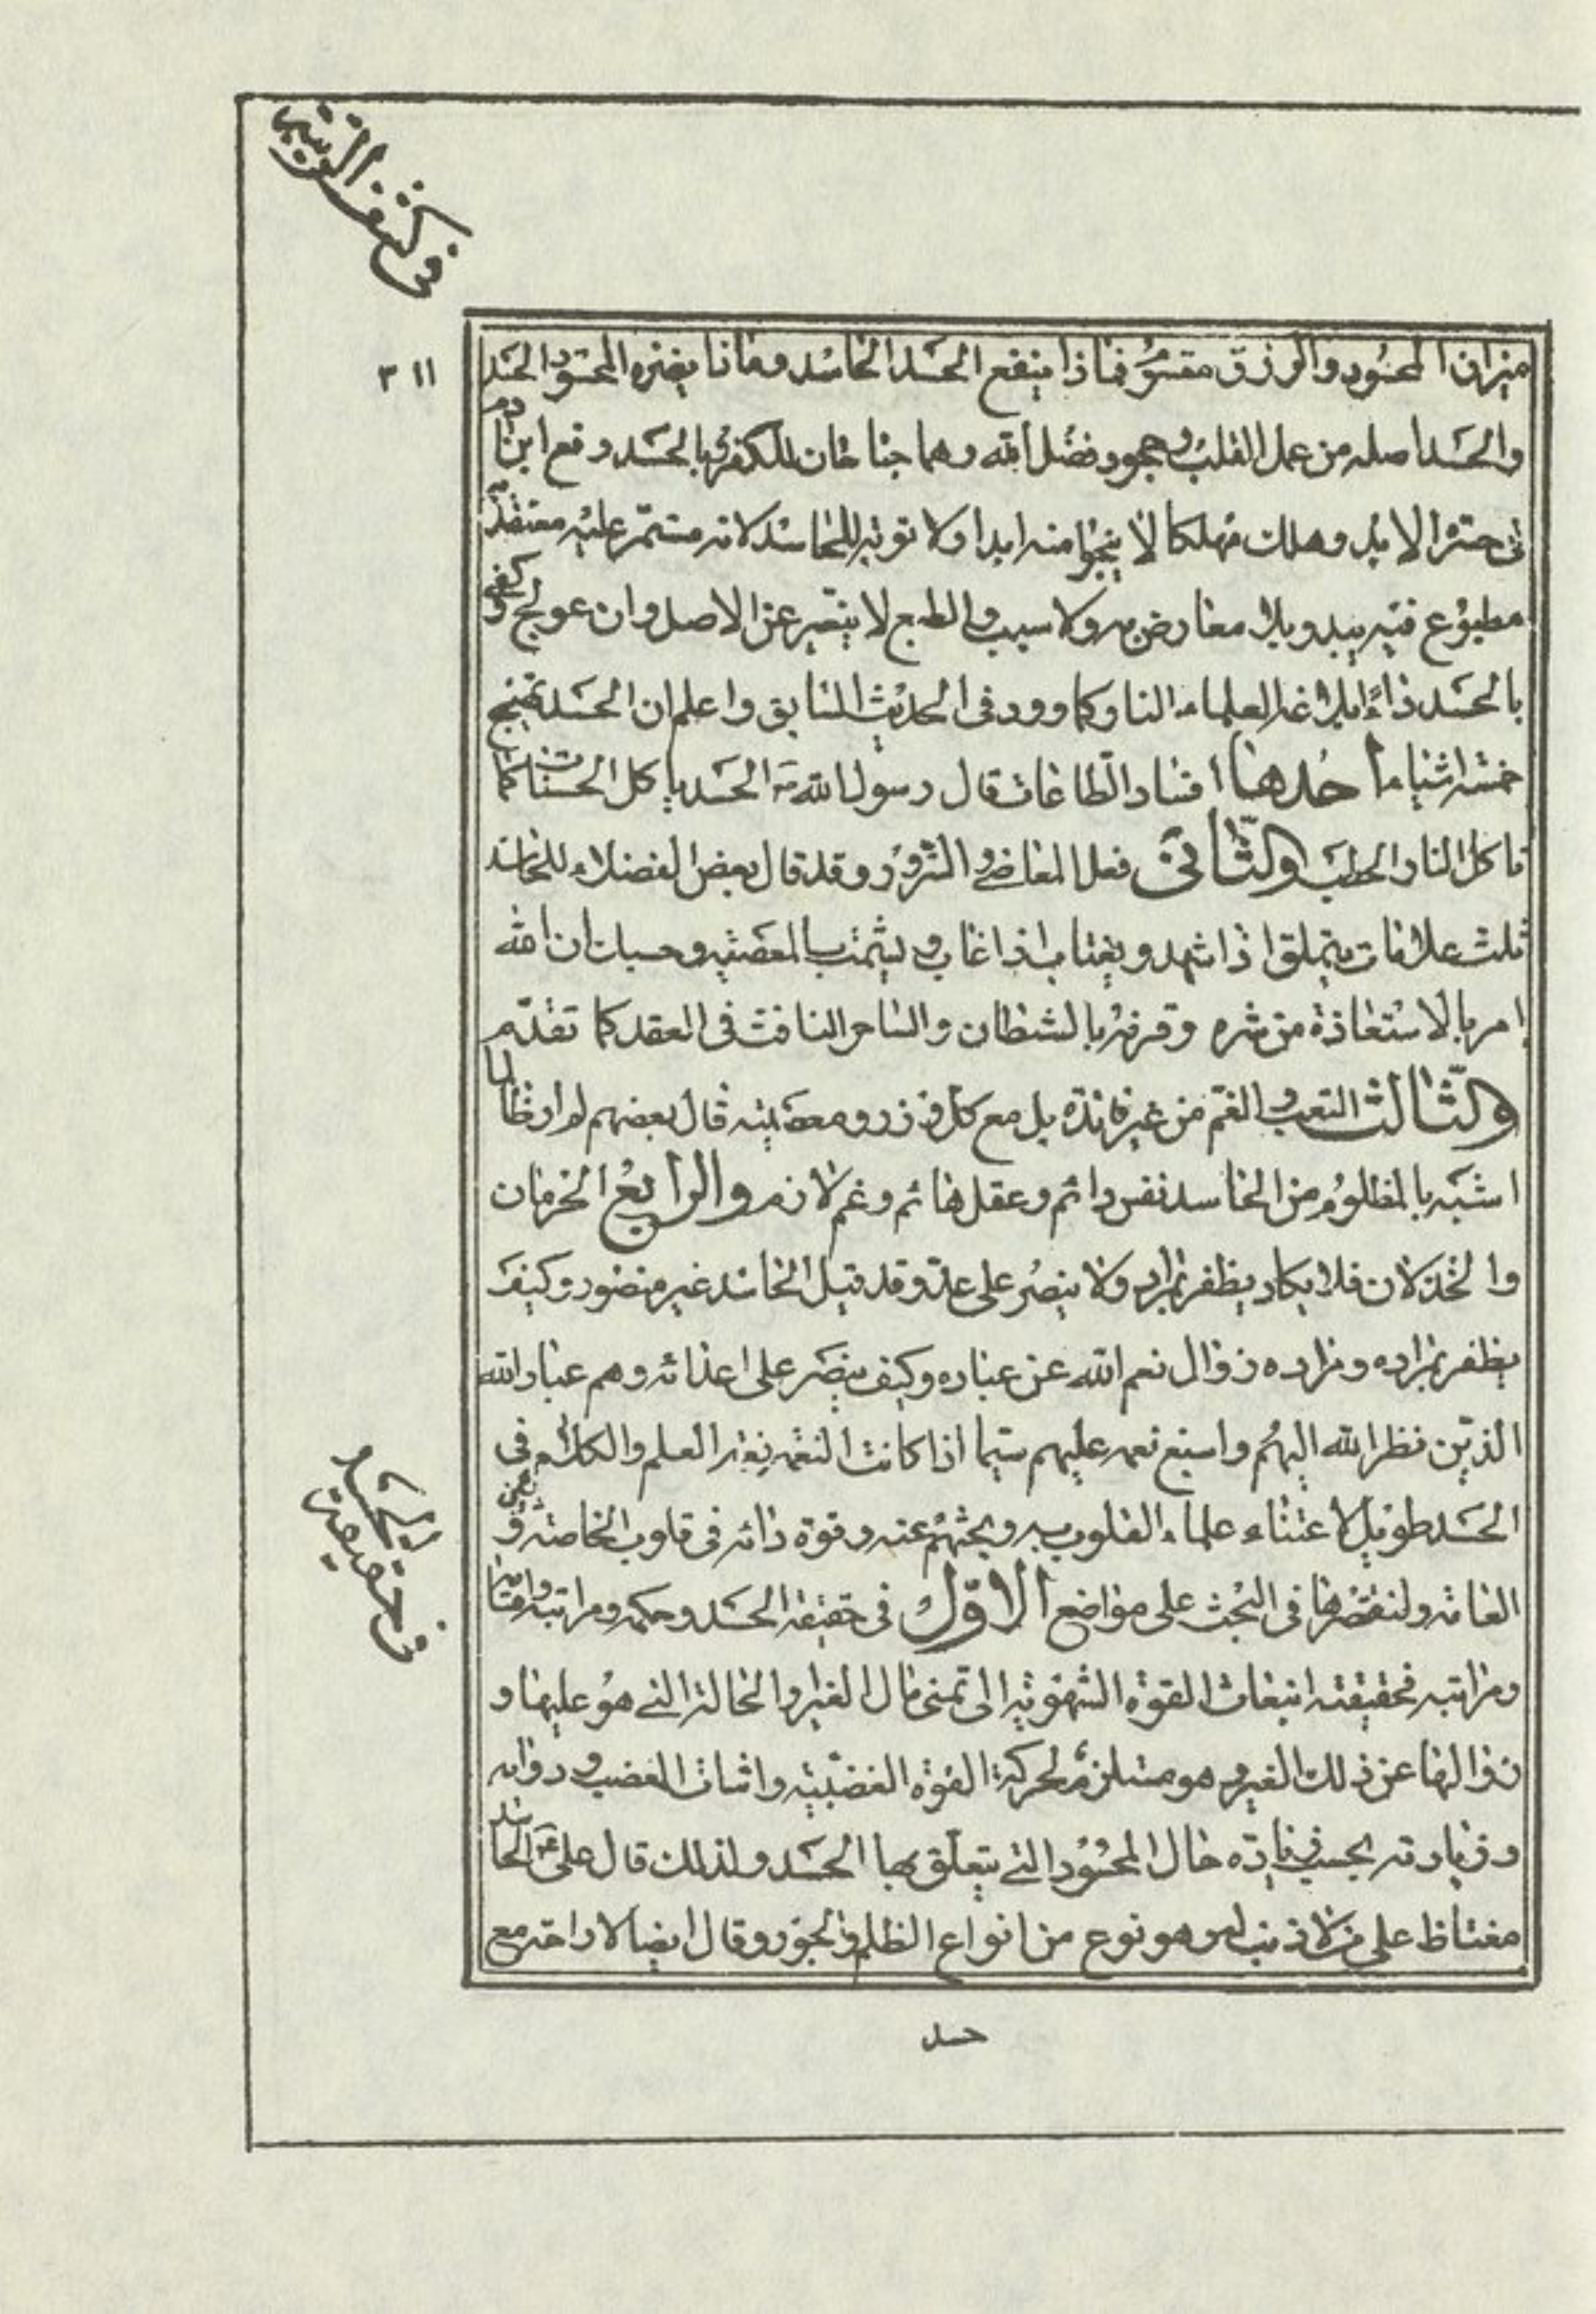 في كشف الريبة
٣١١
ميزان المحسود والرزق مقسوم فماذا ينفع الحسد الحاسد وماذا يضره المحسود الحسد
والحسد اصله من عمى القلب وجحود فضل الله وهما جناحان للكفر وبالحسد وقع ابن ادم
في حسرة الابد وهلك مهلكا لا ينجوا منه ابدا ولا توبة للحاسد لانه مستمر عليه معتقد به
مطبوع فيه يبدو بلا معارض به ولا سبب والطبع لا يتغير عن الاصل وان عولج وكفى
بالحسد داءً ابلاغه العلماء النار كما ورد في الحديث السابق واعلم ان الحسد ينتج
خمسة اشياء احدها افساد الطاعات قال رسول الله ص الحسد ياكل الحسنات كما
تاكل النار الحطب والثاني فعل المعاصي والشرور وقد قال بعض الفضلاء للحاسد
ثلث علامات يتملق اذا شهد ويغتاب اذا غاب ويشمت بالمصيبة وحسبك ان الله
امر بالاستعاذة من شره وقرنه بالشيطان والساحر النافث في العقد كما تقدم
والثالث التعب والغم من غير فائدة بل مع كل وزر ومعصية قال بعضهم لم ار ظالما
اشبه بالمظلوم من الحاسد نفس دائم وعقل هائم وغم لازم والرابع الحرمان
والخذلان فلا يكاد يظفر بمراد ولا ينصر على عدو وقد قيل الحاسد غير منصور وكيف
يظفر بمراده ومراده زوال نعم الله عن عباده وكيف ينصر على اعدائه وهم عباد الله
الذين نظر الله اليهم واسبغ نعمه عليهم سيما اذا كانت النعمة نعمة العلم والكلام في
الحسد طويل لاعتناء علماء القلوب به وبحثهم عنه وقوة دائه في قلوب الخاصة وبعض
العامة ولنقتصر هنا في البحث على مواضع الاول في حقيقة الحسد وحكمه ومراتبه واقسامه
ومراتبه فحقيقته انبعاث القوة الشهوية الى تمنى مال الغير او الحالة التي هو عليها و
زوالها عن ذلك الغير وهو مستلزم لحركة القوة الغضبية واثبات الغضب ودوامه
وزيادته بحسب زيادة حال المحسود التي يتعلق بها الحسد ولذلك قال علي ع الحاسد
مغتاظ على من لا ذنب له وهو نوع من انواع الظلم والجور وقال ايضا لا راحة مع
حسد
في حقيقة الحسد